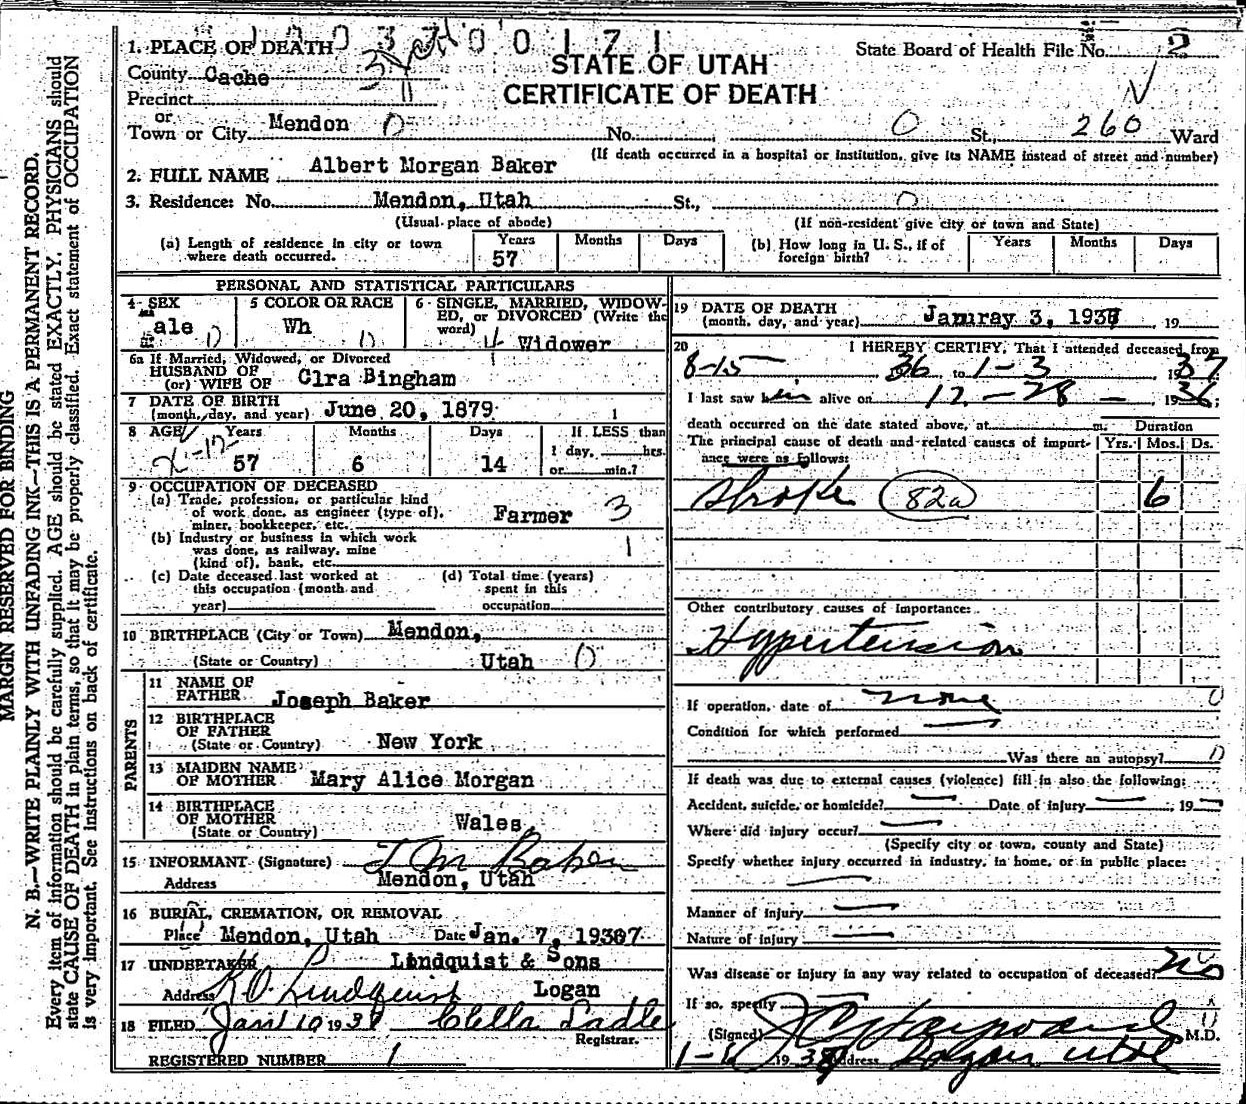 3 7 0 0 1 7 1
1. PLACE OF DEATH
State Board of Health File No. 2
STATE OF UTAH
County Cache
CERTIFICATE OF DEATH
Precinct
or
Town or City Mendon No. 0 St., 260 Ward
(If death occurred in a hospital or institution, give its NAME instead of street and number)
2. FULL NAME Albert Morgan Baker
3. Residence: No. Mendon, Utah St., 0
(Usual place of abode) (If non-resident give city or town and State)
(a) Length of residence in city or town where death occurred. Years 57 Months Days (b) How long in U. S., if of foreign birth? Years Months Days
PERSONAL AND STATISTICAL PARTICULARS
4 SEX ale
5 COLOR OR RACE Wh
6 SINGLE, MARRIED, WIDOWED, or DIVORCED (Write the word) 4 Widower
6a If Married, Widowed, or Divorced
HUSBAND OF
(or) WIFE OF Clra Bingham
7 DATE OF BIRTH
(month, day, and year) June 20, 1879 1
8 AGE Years Months Days If LESS than
57 6 14 1 day, hrs.
or min.?
9 OCCUPATION OF DECEASED
(a) Trade, profession, or particular kind
of work done, as engineer (type of),
miner, bookkeeper, etc. Farmer 3
(b) Industry or business in which work
was done, as railway, mine
(kind of), bank, etc. 1
(c) Date deceased last worked at
this occupation (month and
year)
(d) Total time (years)
spent in this
occupation
10 BIRTHPLACE (City or Town) Mendon,
(State or Country) Utah 0
PARENTS
11 NAME OF
FATHER Joseph Baker
12 BIRTHPLACE
OF FATHER
(State or Country) New York
13 MAIDEN NAME
OF MOTHER Mary Alice Morgan
14 BIRTHPLACE
OF MOTHER
(State or Country) Wales
15 INFORMANT (Signature) J M Baker
Address Mendon, Utah
16 BURIAL, CREMATION, OR REMOVAL
Place Mendon, Utah Date Jan. 7, 19367
17 UNDERTAKER Lindquist & Sons
Address Lindquist Logan
18 FILED Jan 10 193 Clella Ladle
Registrar.
REGISTERED NUMBER 1
19 DATE OF DEATH
(month, day, and year) Januray 3, 1937, 19
20 I HEREBY CERTIFY, That I attended deceased from
8-15 36 to 1-3 1937
I last saw him alive on 12-28- 1936;
death occurred on the date stated above, at m. Duration
The principal cause of death and related causes of importance were as follows: Yrs. Mos. Ds.
Stroke 82a 6
Other contributory causes of importance:
Hypertension
If operation, date of none 0
Condition for which performed
Was there an autopsy? 0
If death was due to external causes (violence) fill in also the following:
Accident, suicide, or homicide? Date of injury , 19
Where did injury occur?
(Specify city or town, county and State)
Specify whether injury occurred in industry, in home, or in public place:
Manner of injury
Nature of injury
Was disease or injury in any way related to occupation of deceased? No
If so, specify
(Signed) M.D.
1- 1937 Address Logan Utah
MARGIN RESERVED FOR BINDING
N. B.—WRITE PLAINLY WITH UNFADING INK—THIS IS A PERMANENT RECORD.
Every item of information should be carefully supplied. AGE should be stated EXACTLY. PHYSICIANS should
state CAUSE OF DEATH in plain terms, so that it may be properly classified. Exact statement of OCCUPATION
is very important. See instructions on back of certificate.